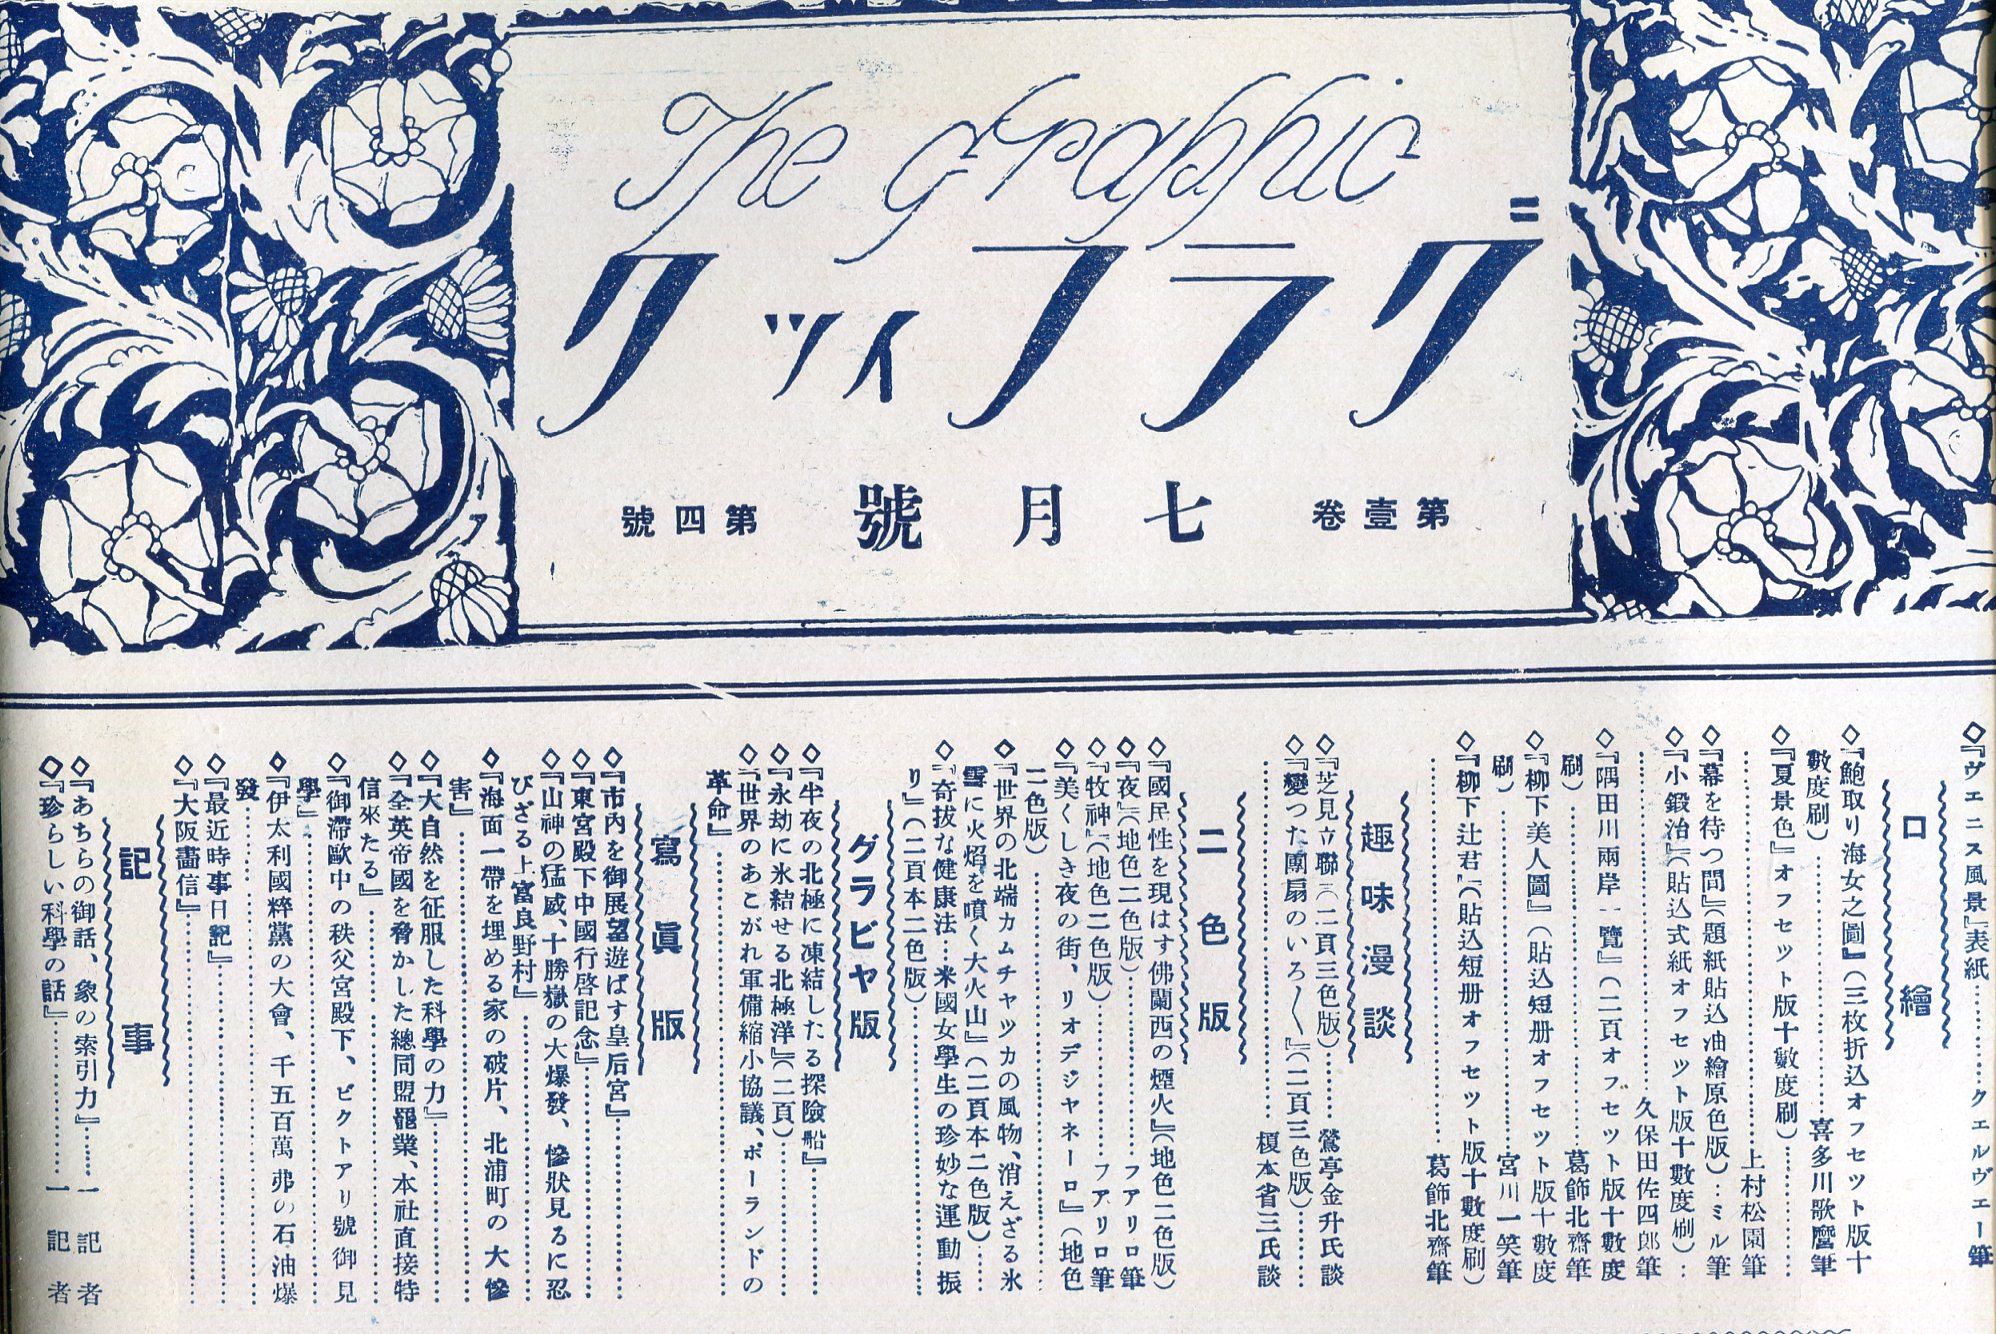 The Graphic
グラフィック
第壹卷
七月號
第四號
◇『ヴエニス風景』表紙…………クエルヴエー筆
口繪
◇『鮑取り海女之圖』(三枚折込オフセツト版十
數度刷)…………喜多川歌麿筆
◇『夏景色』オフセツト版十數度刷)…………
…………上村松園筆
◇『幕を待つ間』(題紙貼込油繪原色版)…ミル筆
◇『小鍛治』(貼込式紙オフセット版十數度刷)…
…………久保田佐四郎筆
◇『隅田川兩岸一覽』(二頁オフセツト版十數度
刷)…………葛飾北齋筆
◇『柳下美人圖』(貼込短册オフセツト版十數度
刷)…………宮川一笑筆
◇『柳下辻君』(貼込短册オフセツト版十數度刷)
…………葛飾北齋筆
趣味漫談
◇『芝見立聯』(二頁三色版)……鶯亭金升氏談
◇『變つた團扇のいろ〱』(二頁三色版)……
…………榎本省三氏談
二色版
◇『國民性を現はす佛蘭西の煙火』(地色二色版)
◇『夜』(地色二色版)…………フアリロ筆
◇『牧神』(地色二色版)…………フアリロ筆
◇『美くしき夜の街、リオデジヤネーロ』(地色
二色版)…………
◇『世界の北端カムチヤツカの風物、消えざる氷
雪に火焰を噴く大火山』(二頁本二色版)……
◇『奇拔な健康法…米國女學生の珍妙な運動振
り』(二頁本二色版)…………
グラビヤ版
◇『半夜の北極に凍結したる探險船』…………
◇『永劫に氷結せる北極洋』(二頁)…………
◇『世界のあこがれ軍備縮小協議、ポーランドの
革命』…………
寫眞版
◇『市內を御展望遊ばす皇后宮』…………
◇『東宮殿下中國行啓記念』…………
◇『山神の猛威、十勝嶽の大爆發、慘狀見るに忍
びざる上富良野村』…………
◇『海面一帶を埋める家の破片、北浦町の大慘
害』…………
◇『大自然を征服した科學の力』…………
◇『全英帝國を脅かした總同盟罷業、本社直接特
信來たる』…………
◇『御滯歐中の秩父宮殿下、ビクトアリ號御見
學』…………
◇『伊太利國粹黨の大會、千五百萬弗の石油爆
發…………
◇『最近時事日記』…………
◇『大阪畵信』…………
記事
◇『あちらの御話、象の索引力』……一記者
◇『珍らしい科學の話』…………一記者